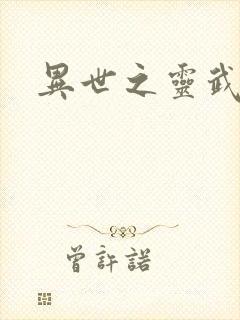 異世之靈武
曾許諾